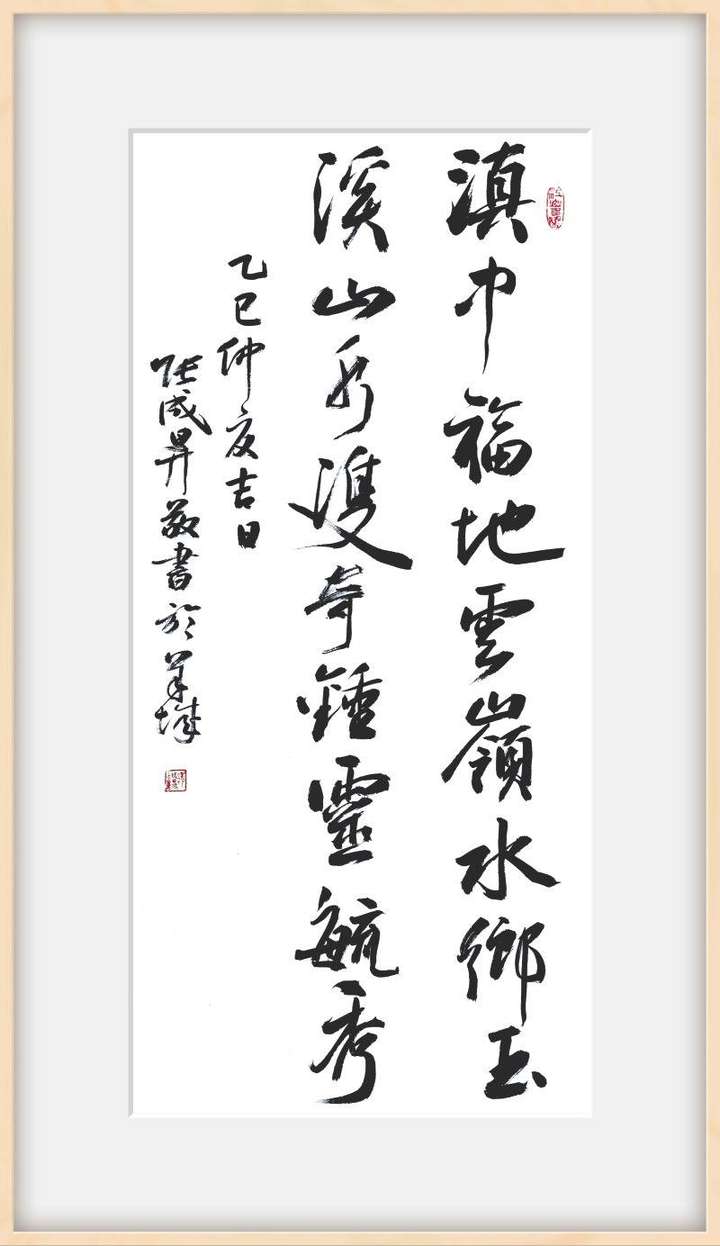 滇中福地雲嶺水鄉玉
溪山雙奇鍾靈毓秀
乙巳仲夏吉日
张成昇敬書於羊城